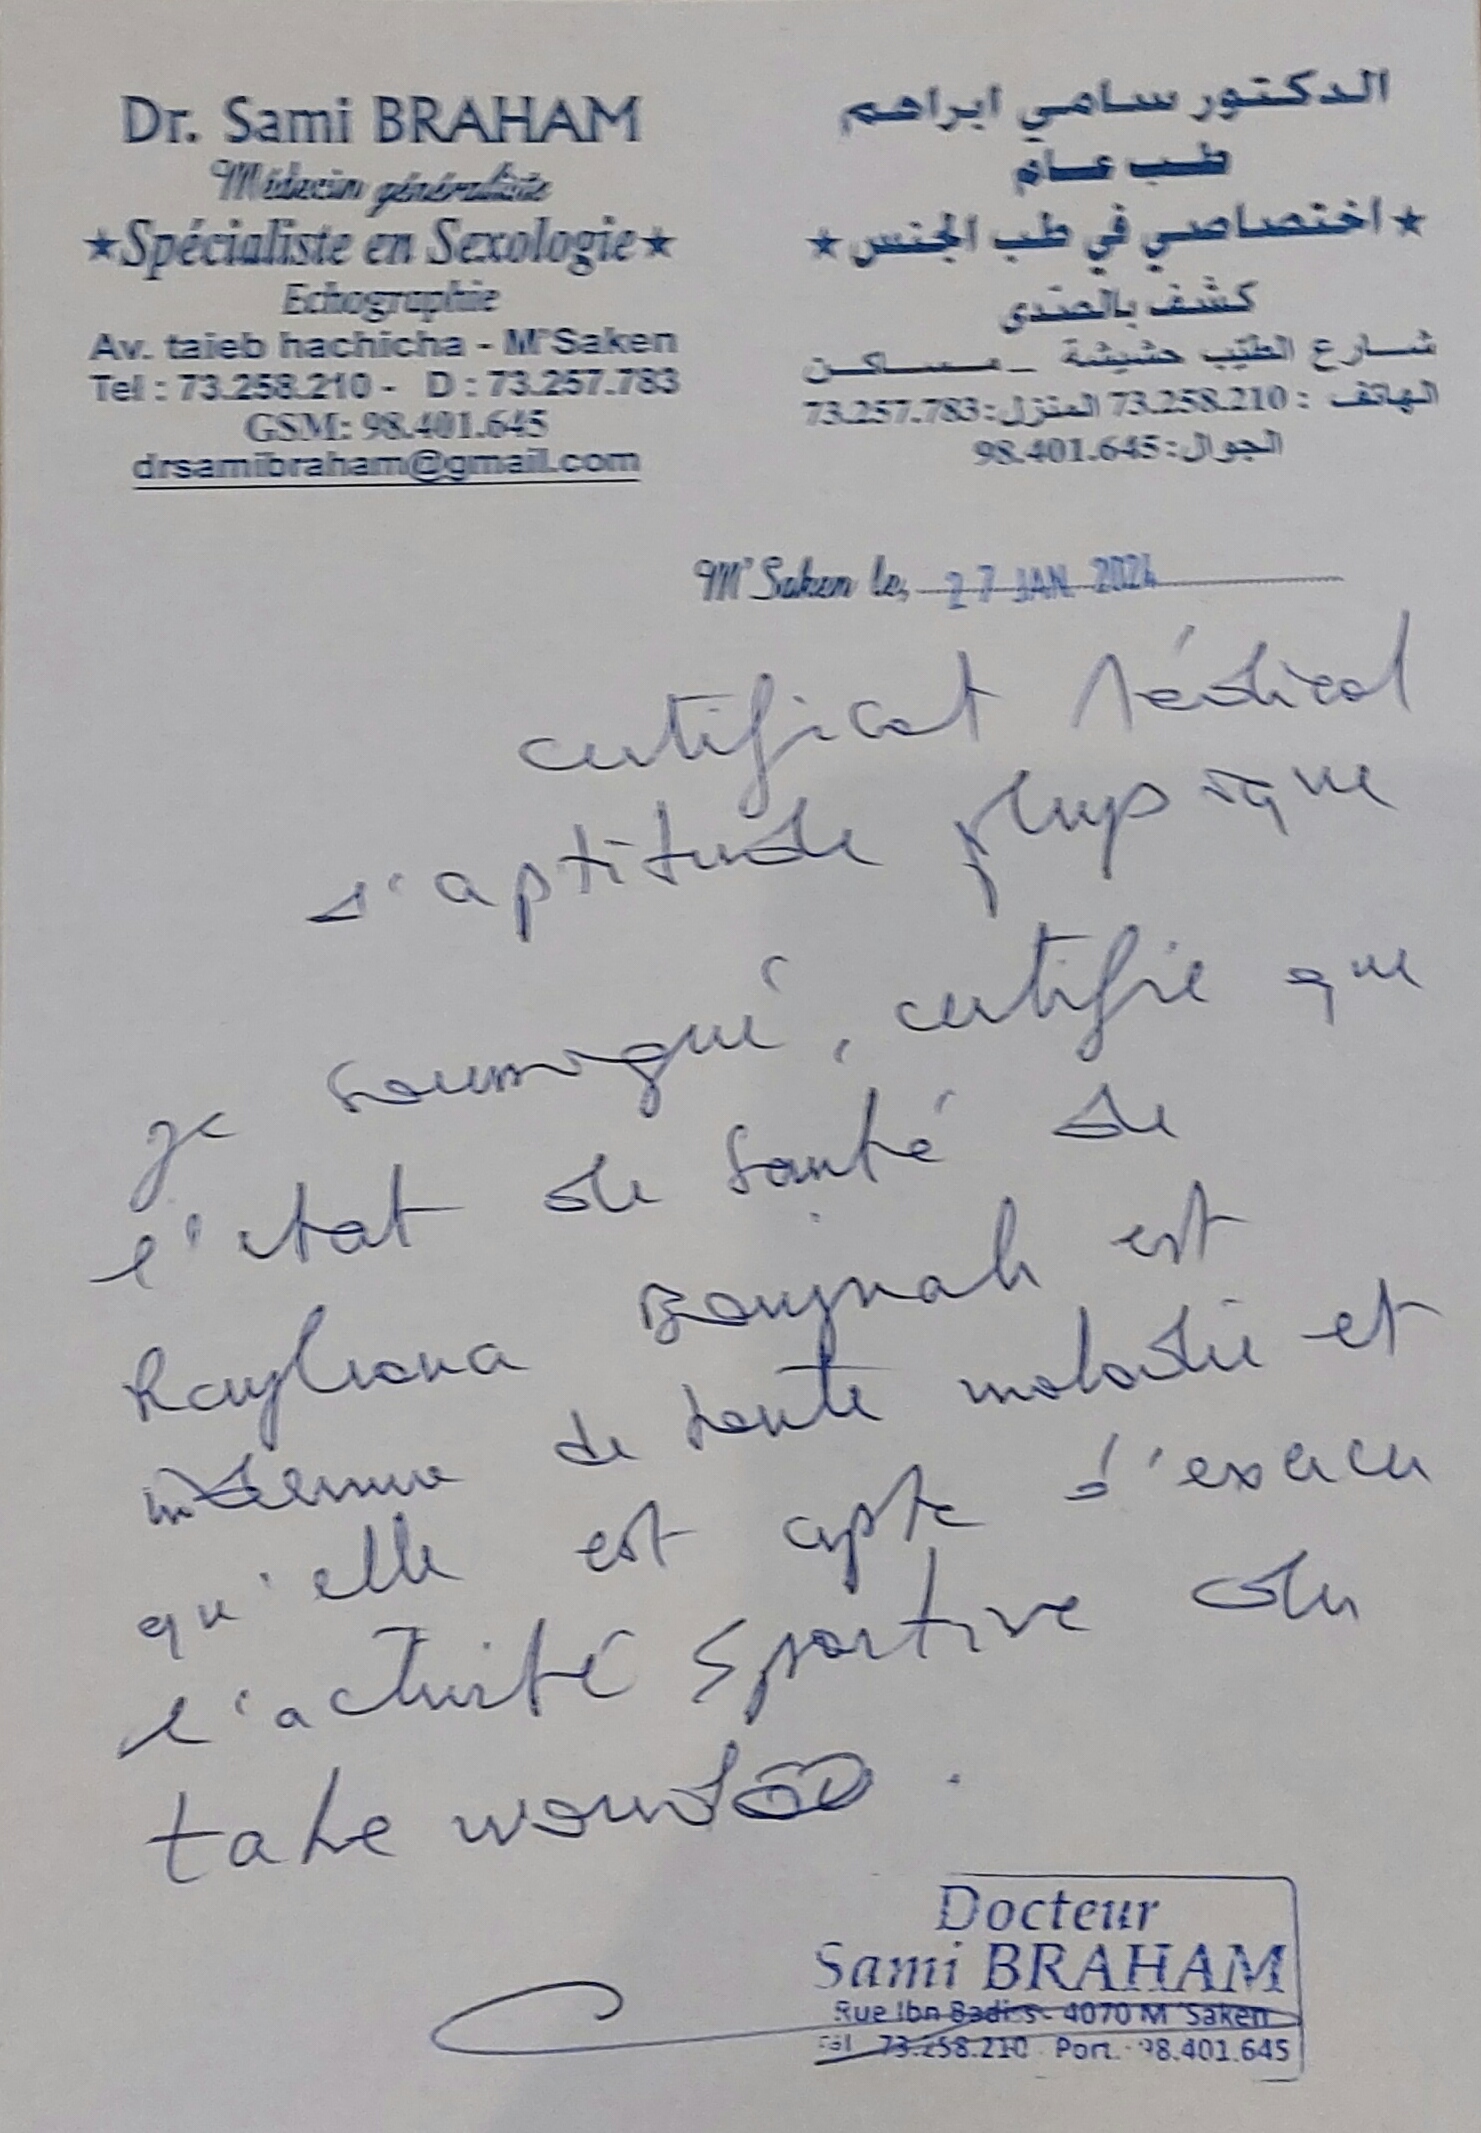 Dr. Sami BRAHAM
Médecin généraliste
★Spécialiste en Sexologie★
Echographie
Av. taieb hachicha - M'Saken
Tel : 73.258.210 - D : 73.257.783
GSM: 98.401.645
drsamibraham@gmail.com
الدكتور سامي ابراهم
طب عام
★ اختصاصي في طب الجنس ★
كشف بالصدى
شارع الطيّب حشيشة _ مساكن
الهاتف : 73.258.210 المنزل: 73.257.783
الجوال: 98.401.645
M'Saken le, 27 JAN. 2024
certificat Médical
d'aptitude physique
je soussigné, certifie que
l'état de santé de
Rayhana Boujnah est
indemne de toute maladie et
qu'elle est apte d'exercer
l'activité sportive du
take wondo.
Docteur
Sami BRAHAM
Rue Ibn Badis - 4070 M'Saken
Tél 73.258.210 Port. 98.401.645